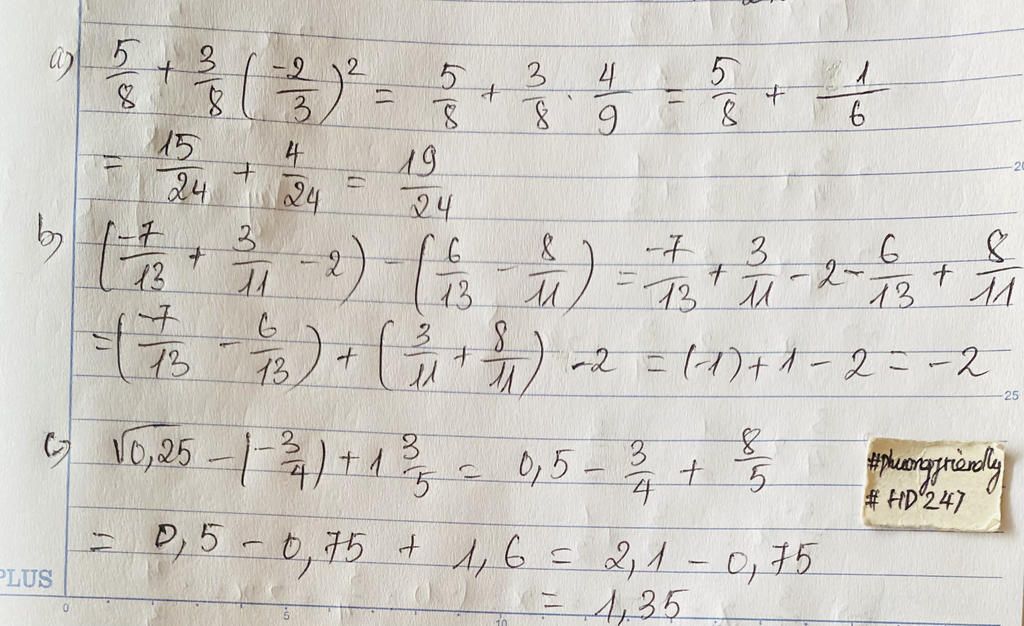 a) 5/8 + 3/8 (-2/3)² = 5/8 + 3/8 . 4/9 = 5/8 + 1/6
= 15/24 + 4/24 = 19/24
20
b) (-7/13 + 3/11 - 2) - (6/13 - 8/11) = -7/13 + 3/11 - 2 - 6/13 + 8/11
= (-7/13 - 6/13) + (3/11 + 8/11) - 2 = (-1) + 1 - 2 = -2
25
c) √0,25 - (-3/4) + 1 3/5 = 0,5 - 3/4 + 8/5
#phuongfriendly
# HD 247
= 0,5 - 0,75 + 1,6 = 2,1 - 0,75
PLUS
= 1,35
0 5 10